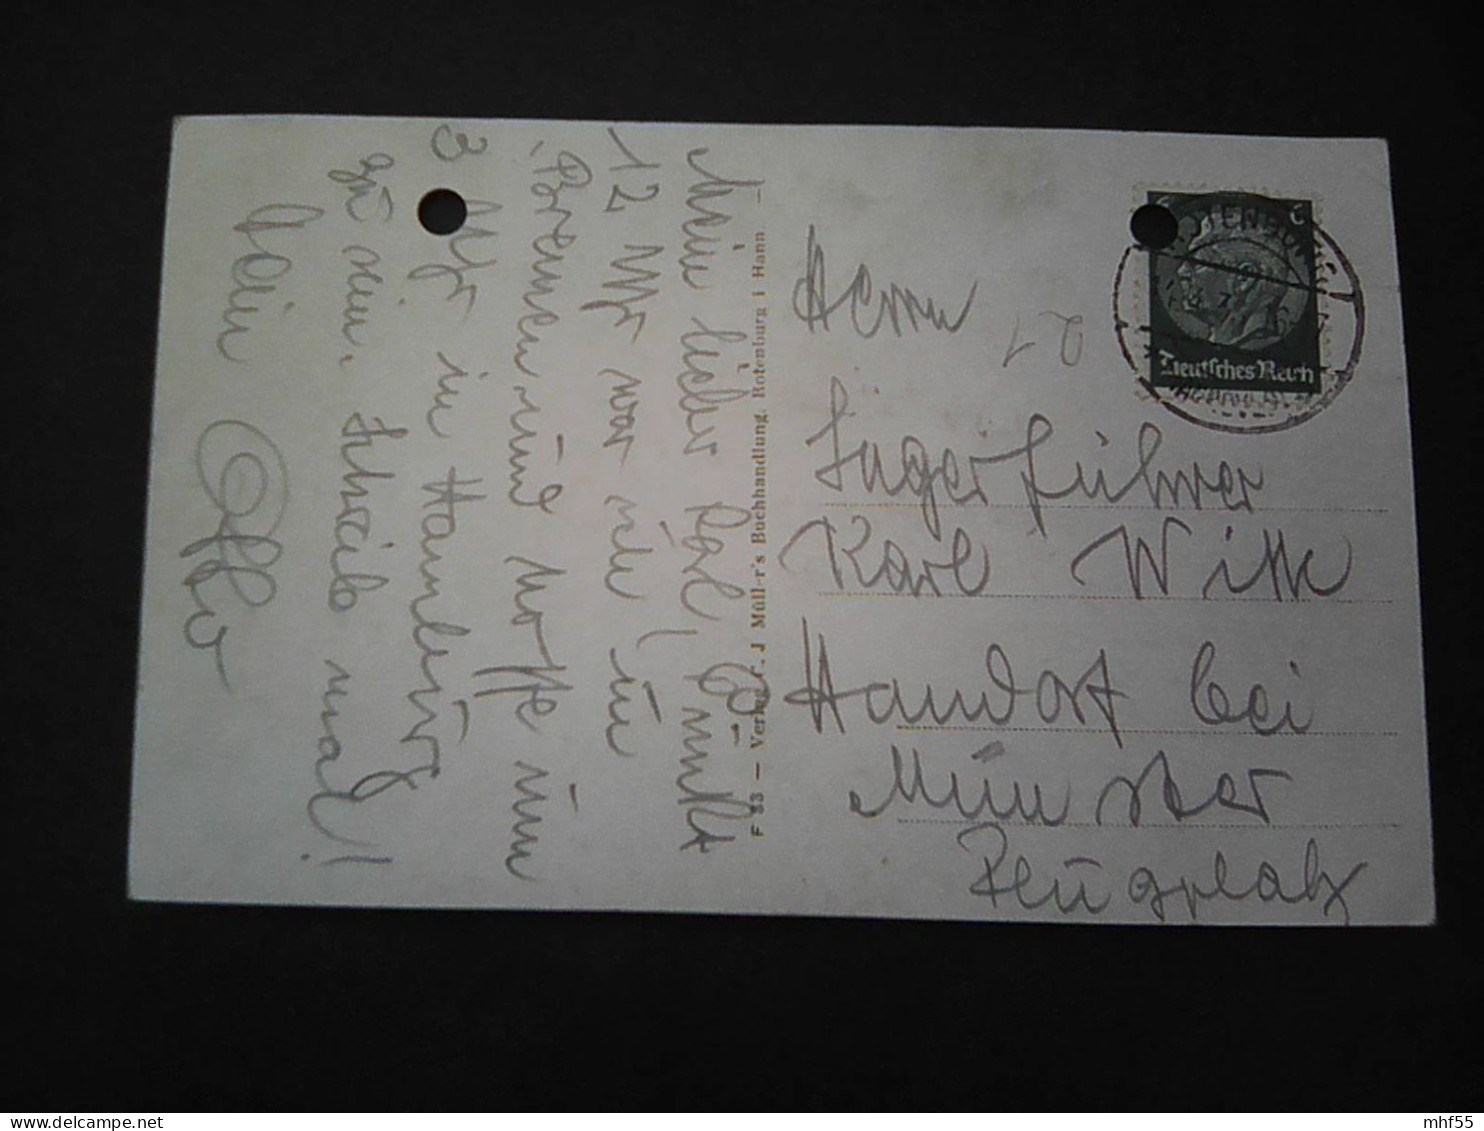 Mein lieber Karl, Punkt
12 Uhr war ich in
Bremen und hoffe um
3 Uhr in Hamburg
zu sein. Schreib mal!
Dein
Otto
F 33 — Verlag F. J Müller's Buchhandlung, Rotenburg i Hann. —
Deutsches Reich
Herrn
21
Lagerführer
Karl Witt
Handorf bei
Münster
Flugplatz
mhf55